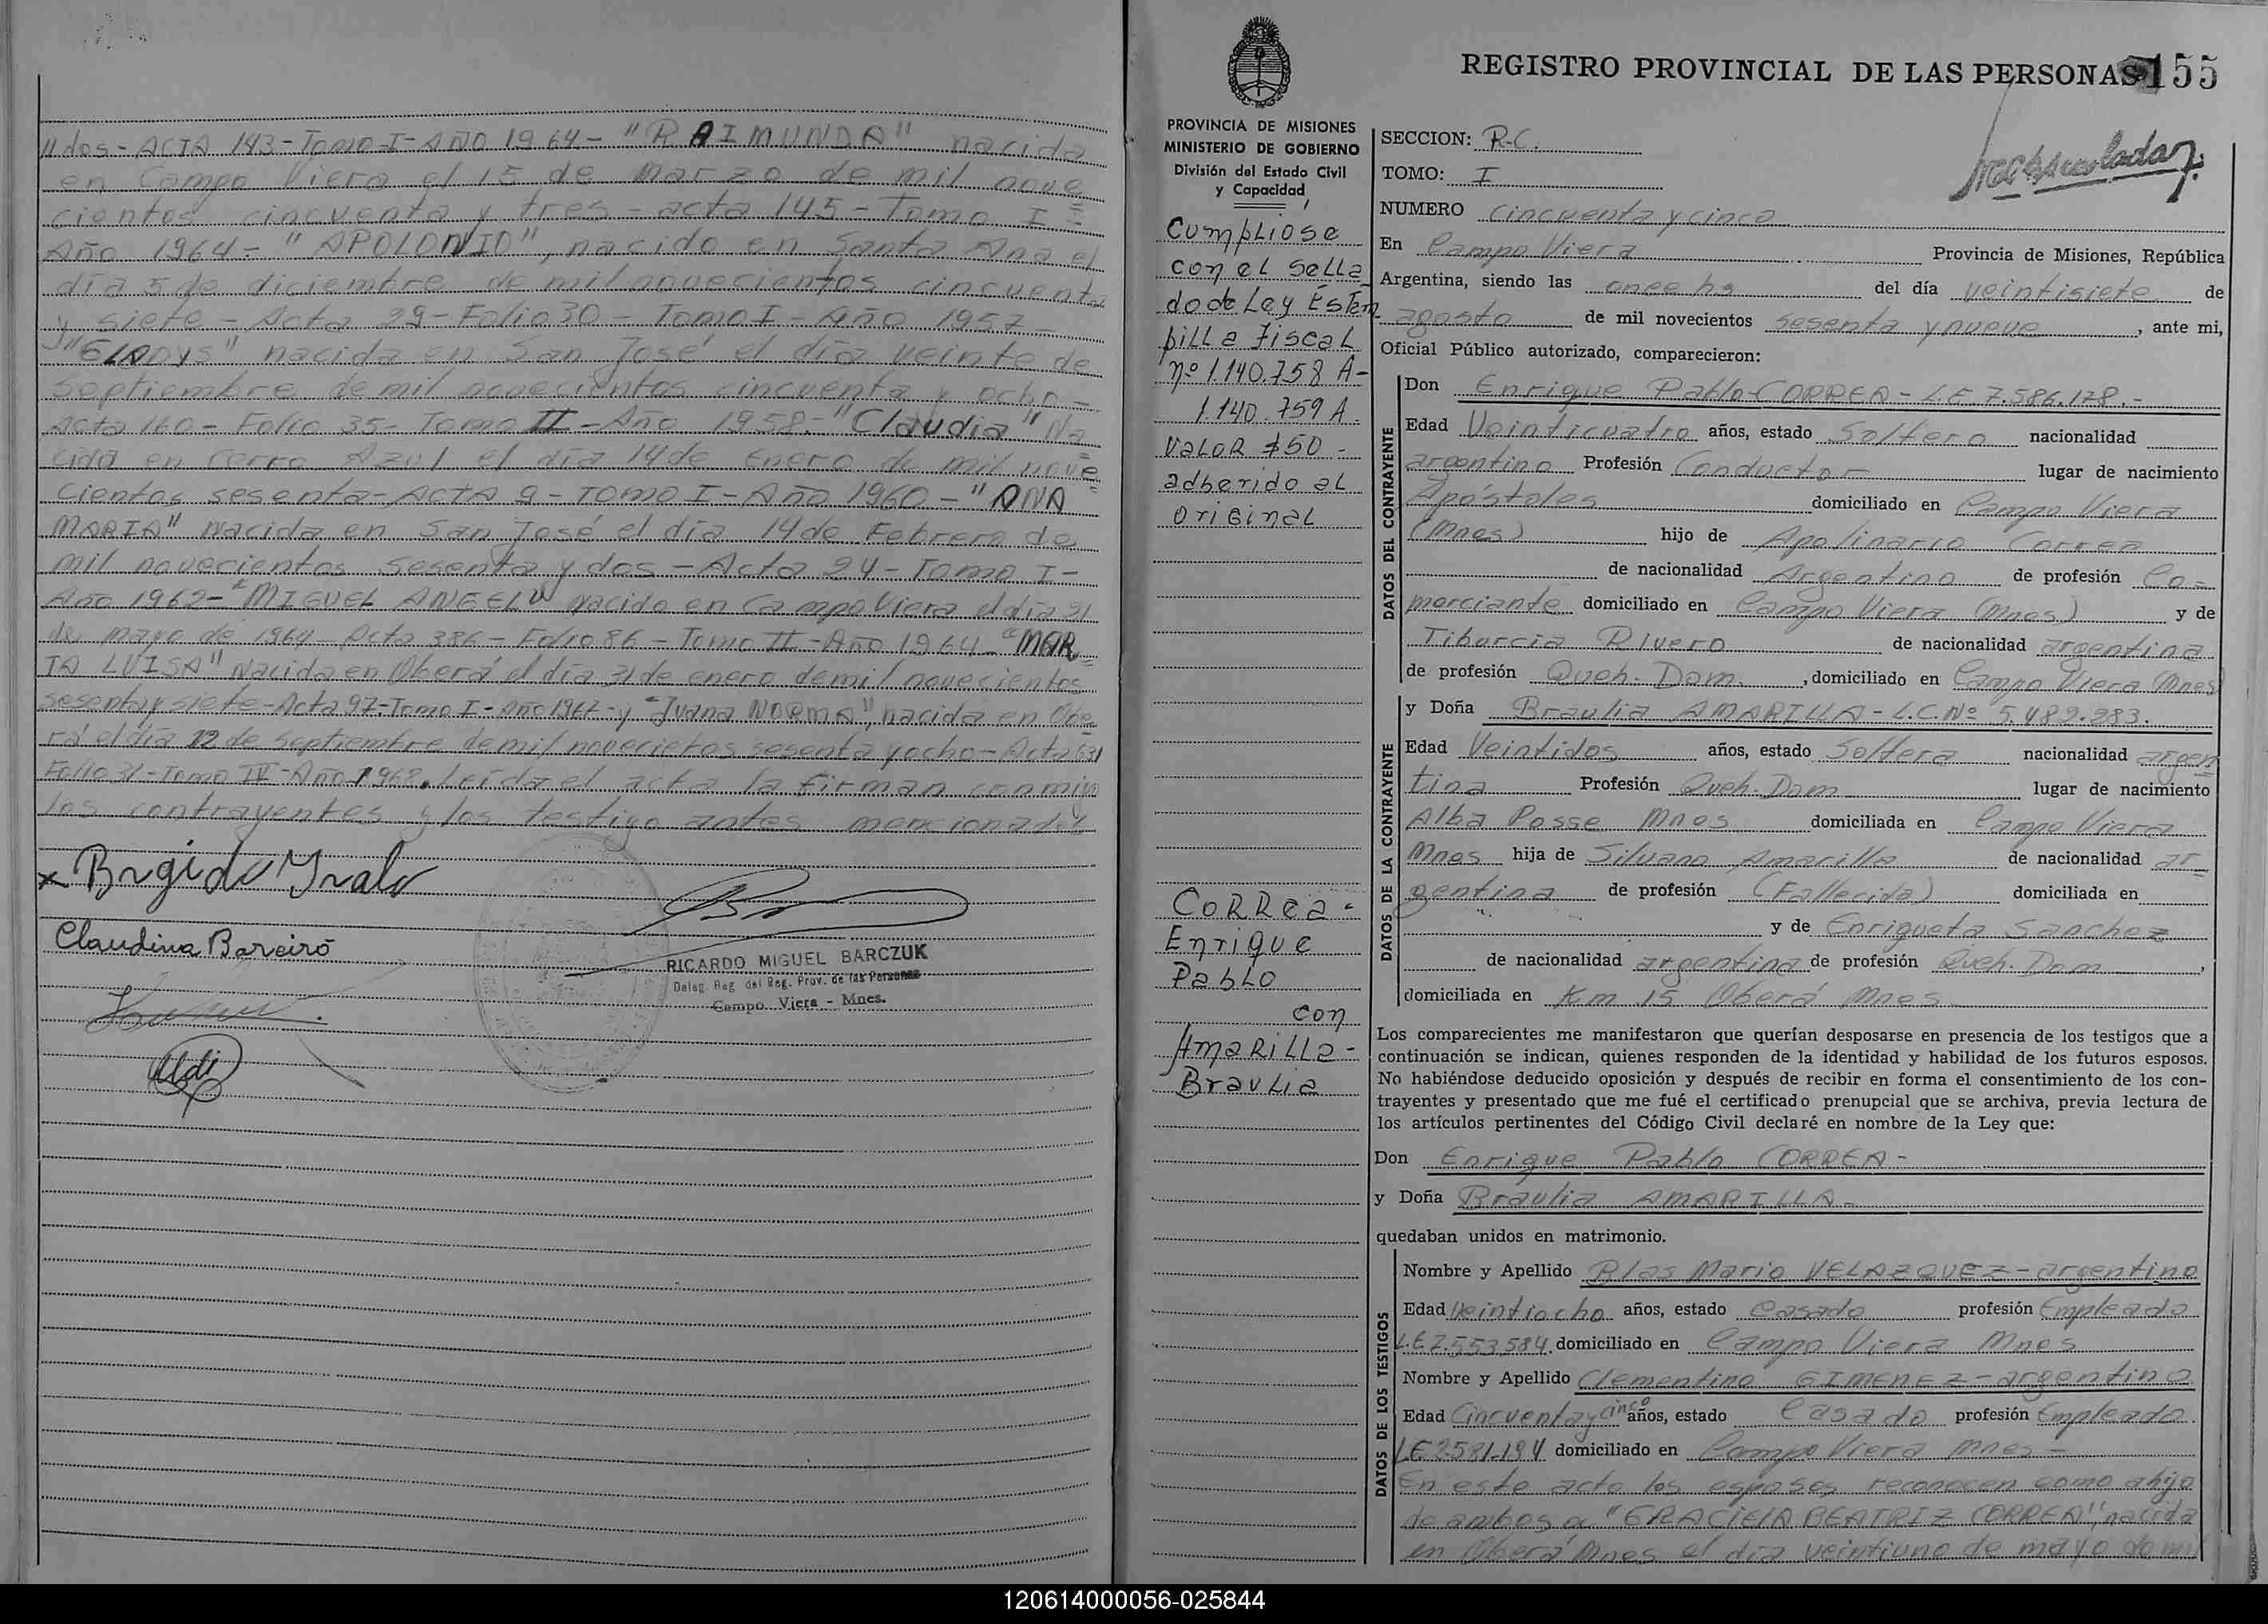 "dos - ACTA 143 - Tomo-I- AÑO 1964 - "RAIMUNDA" nacida
en Campo Viera el 15 de Marzo de mil nove
cientos cincuenta y tres - acta 145 - Tomo I =
Año 1964 - "APOLONIO", nacido en Santa Ana el
día 5 de diciembre de mil novecientos cincuenta
y siete - Acta 29 - Folio 30 - Tomo I - Año 1957 -
"GLADYS" nacida en San José el día veinte de
septiembre de mil novecientos cincuenta y ocho -
Acta 160 - Folio 35 - Tomo II - Año 1958 - "Claudia" Na
cida en Cerro Azul el día 14 de Enero de mil nove
cientos sesenta - ACTA 9 - TOMO I - Año 1960 - "ANA
MARIA" nacida en San José el día 14 de Febrero de
mil novecientos sesenta y dos - Acta 24 - Tomo I -
Año 1962 - "MIGUEL ANGEL" nacido en Campo Viera el día 21
de mayo de 1964 - Acta 386 - Folio 86 - Tomo II - Año 1964 - "MAR
TA LUISA" nacida en Oberá el día 31 de enero de mil novecientos
sesenta y siete - Acta 97 - Tomo I - Año 1967 - y "Juana NORMA", nacida en Obe
rá el día 12 de septiembre de mil novecietos sesenta y ocho - Acta 631
Folio 31 - Tomo IV - Año 1968. Leída el acta la firman conmigo
los contrayentes y los testigo antes mencionados
x Brigido
Claudina Bareiro
RICARDO MIGUEL BARCZUK
Deleg. Reg. del Reg. Prov. de las Personas
Campo Viera - Mnes.
REGISTRO PROVINCIAL DE LAS PERSONAS 155
PROVINCIA DE MISIONES
MINISTERIO DE GOBIERNO
División del Estado Civil
y Capacidad
Cumpliose
con el sella
do de Ley Estam
pilla fiscal
nº 1.140.758 A-
1.140.759 A.
VALOR $50 -
adherido al
original
CORREA -
Enrique
Pablo
con
AMARILLA -
Braulia
SECCION: R.C.
TOMO: I
NUMERO Cincuenta y cinco
En Campo Viera Provincia de Misiones, República
Argentina, siendo las once hs del día veintisiete de
agosto de mil novecientos sesenta y nueve, ante mi,
Oficial Público autorizado, comparecieron:
DATOS DEL CONTRAYENTE
Don Enrique Pablo CORREA - L.E 7.586.178.-
Edad Veinticuatro años, estado Soltero nacionalidad
argentino Profesión Conductor lugar de nacimiento
Apóstoles domiciliado en Campo Viera
(Mnes) hijo de Apolinario Correa
de nacionalidad Argentino de profesión Co-
merciante domiciliado en Campo Viera (Mnes) y de
Tiburcia Rivero de nacionalidad argentina
de profesión Queh. Dom., domiciliado en Campo Viera Mnes
DATOS DE LA CONTRAYENTE
y Doña Braulia AMARILLA - L.C.Nº 5.489.283.
Edad Veintidos años, estado Soltera nacionalidad argen
tina Profesión Queh. Dom lugar de nacimiento
Alba Posse Mnes domiciliada en Campo Viera
Mnes hija de Silvano Amarilla de nacionalidad ar
gentina de profesión (Fallecido) domiciliada en
y de Enriqueta Sanchez
de nacionalidad argentina de profesión Queh. Dom,
domiciliada en Km 15 Oberá Mnes
Los comparecientes me manifestaron que querían desposarse en presencia de los testigos que a
continuación se indican, quienes responden de la identidad y habilidad de los futuros esposos.
No habiéndose deducido oposición y después de recibir en forma el consentimiento de los con-
trayentes y presentado que me fué el certificado prenupcial que se archiva, previa lectura de
los artículos pertinentes del Código Civil declaré en nombre de la Ley que:
Don Enrique Pablo CORREA -
y Doña Braulia AMARILLA -
quedaban unidos en matrimonio.
DATOS DE LOS TESTIGOS
Nombre y Apellido Blas Mario VELAZQUEZ - argentino
Edad Veintiocho años, estado Casado profesión Empleado
L.E 7.553.584. domiciliado en Campo Viera Mnes
Nombre y Apellido Clementino GIMENEZ - argentino
Edad Cincuenta y cinco años, estado Casado profesión Empleado
L.E 2.581.194 domiciliado en Campo Viera Mnes -
En este acto los esposos reconocen como a hija
de ambos a "GRACIELA BEATRIZ CORREA", nacida
en Oberá Mnes el día veintiuno de mayo de mil
120614000056-025844